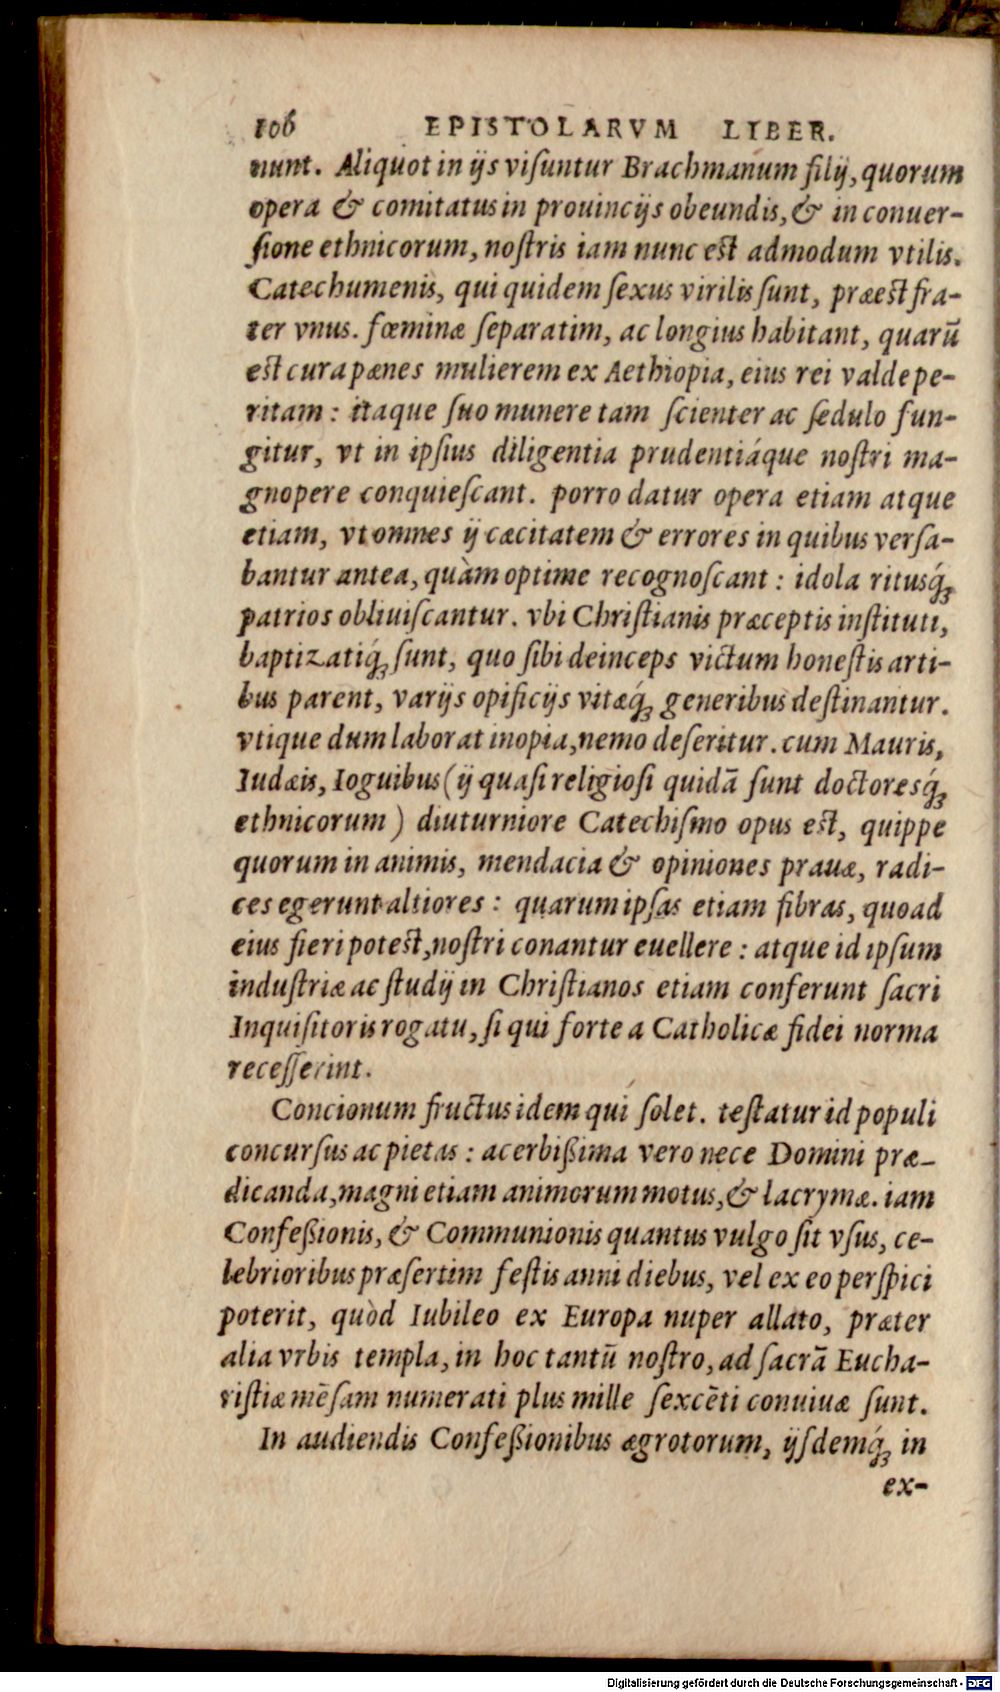 106 EPISTOLARVM LIBER.
nunt. Aliquot in ijs viſuntur Brachmanum filij, quorum
opera & comitatus in prouincijs obeundis, & in conuer-
ſione ethnicorum, noſtris iam nunc est admodum vtilis.
Catechumenis, qui quidem ſexus virilis ſunt, præest fra-
ter vnus. fœminæ ſeparatim, ac longius habitant, quarū
est cura pænes mulierem ex Aethiopia, eius rei valde pe-
ritam: itaque ſuo munere tam ſcienter ac ſedulo fun-
gitur, vt in ipſius diligentia prudentiáque noſtri ma-
gnopere conquieſcant. porro datur opera etiam atque
etiam, vt omnes ij cæcitatem & errores in quibus verſa-
bantur antea, quàm optime recognoſcant: idola rituſq́ꝫ
patrios obliuiſcantur. vbi Chriſtianis præceptis inſtituti,
baptizatiq́ꝫ ſunt, quo ſibi deinceps victum honeſtis arti-
bus parent, varijs opificijs vitæq́ꝫ generibus deſtinantur.
vtique dum laborat inopia, nemo deſeritur. cum Mauris,
Iudæis, Ioguibus (ij quaſi religioſi quidā ſunt doctoresq́ꝫ
ethnicorum) diuturniore Catechiſmo opus est, quippe
quorum in animis, mendacia & opiniones prauæ, radi-
ces egerunt altiores: quarum ipſas etiam fibras, quoad
eius fieri potest, noſtri conantur euellere: atque id ipſum
induſtriæ ac ſtudij in Chriſtianos etiam conferunt ſacri
Inquiſitoris rogatu, ſi qui forte a Catholicæ fidei norma
receſſerint.
Concionum fructus idem qui ſolet. teſtatur id populi
concurſus ac pietas: acerbißima vero nece Domini præ-
dicanda, magni etiam animorum motus, & lacrymæ. iam
Confeßionis, & Communionis quantus vulgo ſit vſus, ce-
lebrioribus præſertim feſtis anni diebus, vel ex eo perſpici
poterit, quòd Iubileo ex Europa nuper allato, præter
alia vrbis templa, in hoc tantū noſtro, ad ſacrā Eucha-
riſtiæ mēſam numerati plus mille ſexcēti conuiuæ ſunt.
In audiendis Confeßionibus ægrotorum, ijſdemq́ꝫ in
ex-
Digitalisierung gefördert durch die Deutsche Forschungsgemeinschaft - DFG